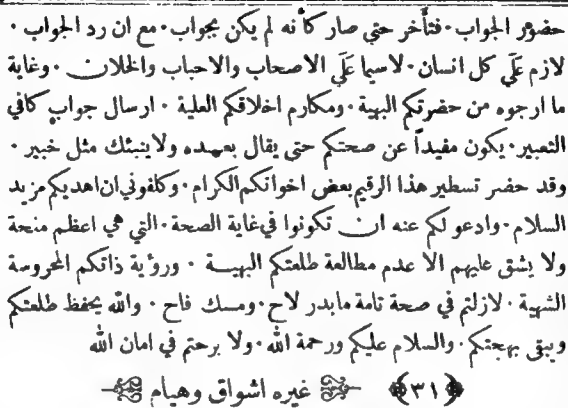 حضور الجواب · فتأخر حتي صار كأنه لم يكن بجواب · مع ان رد الجواب ·
لازم عَلَي كل انسان · لاسيما عَلَي الاصحاب والاحباب والخلان · وغاية
ما ارجوه من حضرتكم البهية · ومكارم اخلاقكم العلية · ارسال جوابٍ كافي
التعبير · يكون مفيداً عن صحتكم حتى يقال بعهده ولا ينبئك مثل خبير ·
وقد حضر تسطير هذا الرقيم بعض اخوانكم الكرام · وكلفوني ان اهديكم مزيد
السلام · وادعو لكم عنه ان تكونوا في غاية الصحة · التي هي اعظم منحة
ولا يشق عليهم الا عدم مطالعة طلعتكم البهية · ورؤية ذاتكم المحروسة
الشهية · لازلتم في صحة تامة مابدر لاح · ومسك فاح · والله يحفظ طلعتكم
ويبقى بهجتكم · والسلام عليكم ورحمة الله · ولا برحتم في امان الله
﴿٣١﴾ غيره اشواق وهيام